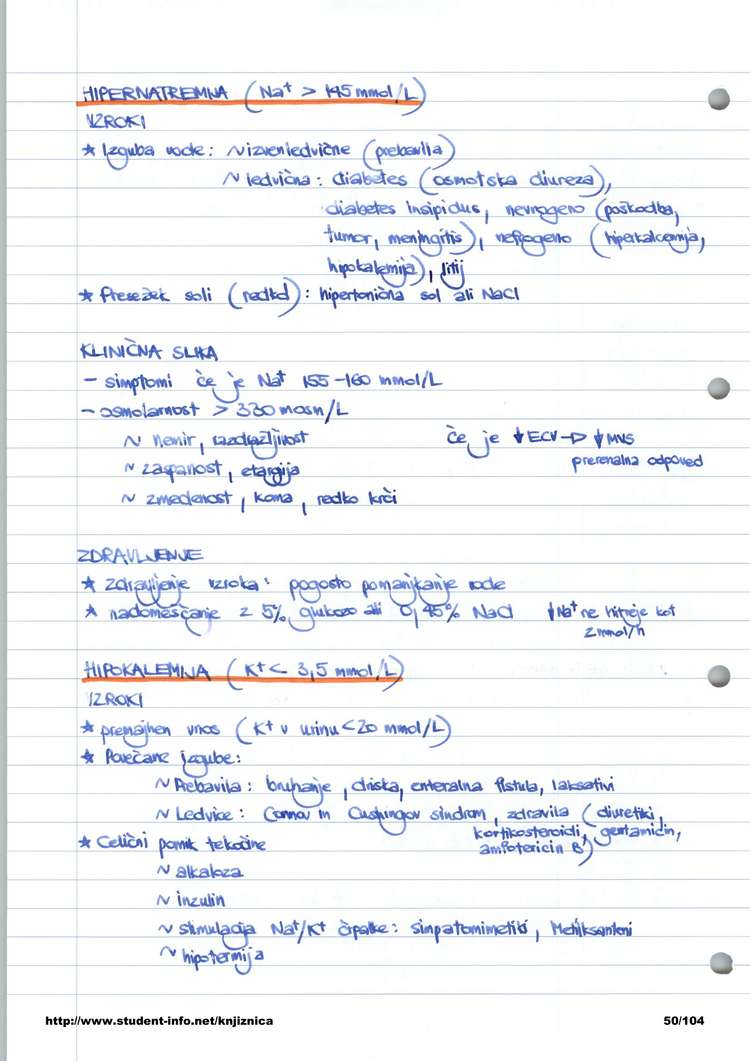 HIPERNATREMIJA (Na⁺ > 145 mmol/L)
VZROKI
* Izguba vode: ~ izvenledvične (prebavila)
~ ledvična: diabetes (osmotska diureza),
diabetes insipidus, nevrogeno (poškodba,
tumor, meningitis), nefrogeno (hiperkalcemija,
hipokalemija), litij
* Presežek soli (redko): hipertonična sol ali NaCl
KLINIČNA SLIKA
- simptomi če je Na⁺ 155-160 mmol/L
- osmolarnost > 330 mosm/L
~ nemir, razdražljivost če je ↓ECV → ↓MVS
~ zaspanost, etargija prerenalna odpoved
~ zmedenost, koma, redko krči
ZDRAVLJENJE
* zdravljenje vzroka: pogosto pomanjkanje vode
* nadomeščanje z 5% glukozo ali 0,45% NaCl ↓Na⁺ ne hitreje kot
2mmol/h
HIPOKALEMIJA (K⁺ < 3,5 mmol/L)
VZROKI
* premajhen vnos (K⁺ v urinu < 20 mmol/L)
* Povečane izgube:
~ Prebavila: bruhanje, driska, enteralna fistula, laksativi
~ Ledvice: Connov in Cushingov sindrom, zdravila (diuretiki,
kortikosteroidi, gentamicin,
amfotericin B)
* Celični pomik tekočine
~ alkaloza
~ inzulin
~ stimulacija Na⁺/K⁺ črpalke: simpatomimetiki, Metilksantini
~ hipotermija
http://www.student-info.net/knjiznica 50/104